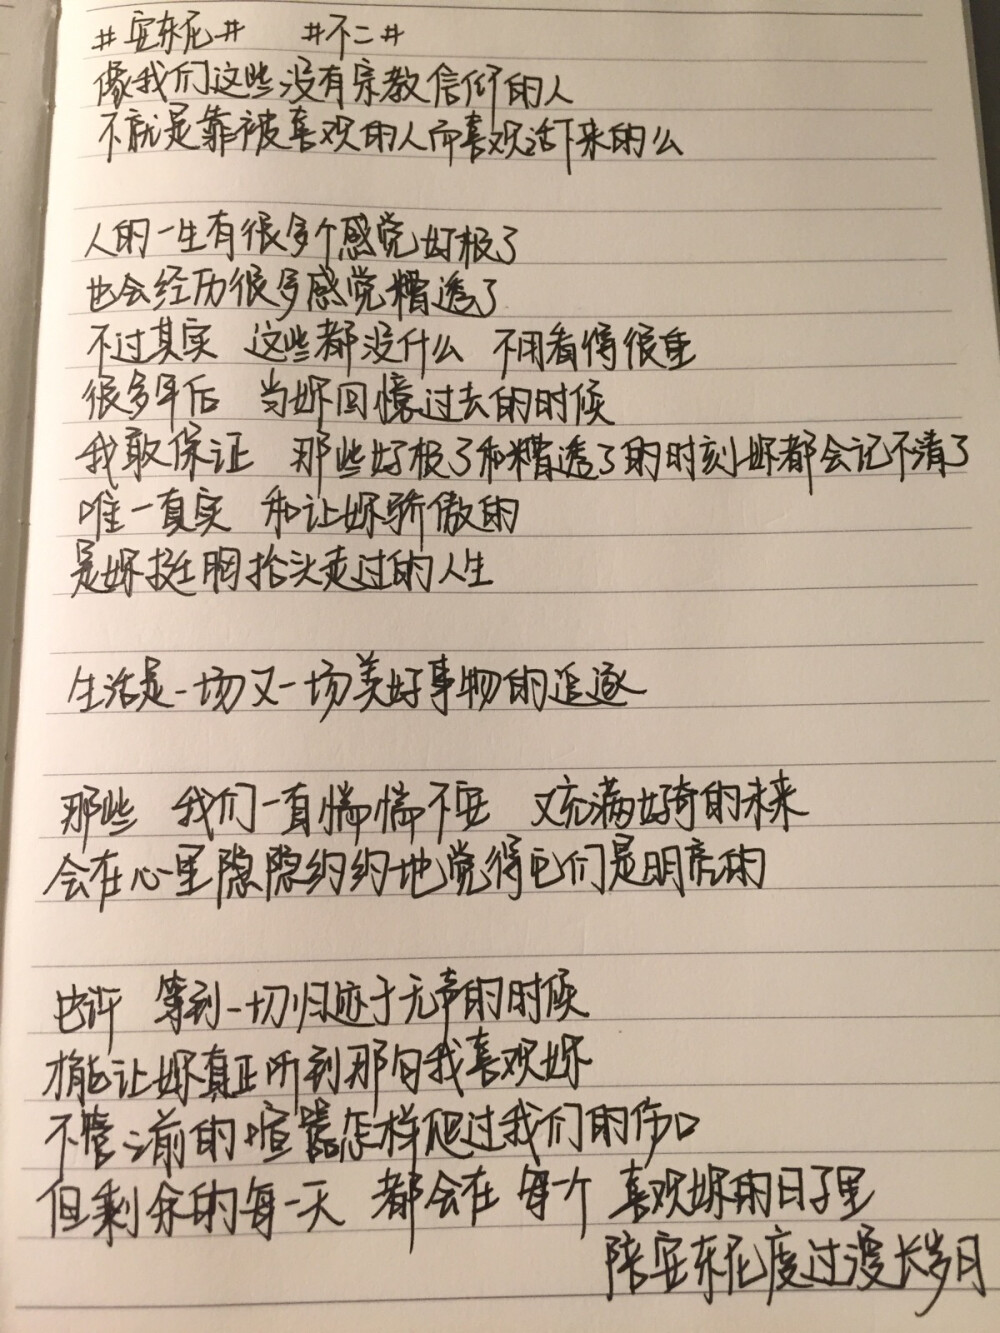 #安东尼# #不二#
像我们这些没有宗教信仰的人
不就是靠被喜欢的人而喜欢活下来的么
人的一生有很多个感觉好极了
也会经历很多感觉糟透了
不过其实 这些都没什么 不用看得很重
很多年后 当妳回憶过去的时候
我敢保证 那些好极了和糟透了的时刻妳都会记不清了
唯一真实 和让妳骄傲的
是妳挺胸抬头走过的人生
生活是一场又一场美好事物的追逐
那些 我们一直惴惴不安 又充满好奇的未来
会在心里隐隐约约地觉得它们是明亮的
也许 等到一切归迹于无声的时候
才能让妳真正听到那句我喜欢妳
不管之前的喧嚣怎样爬过我们的伤口
但剩余的每一天 都会在 每个 喜欢妳的日子里
陪安东尼度过漫长岁月